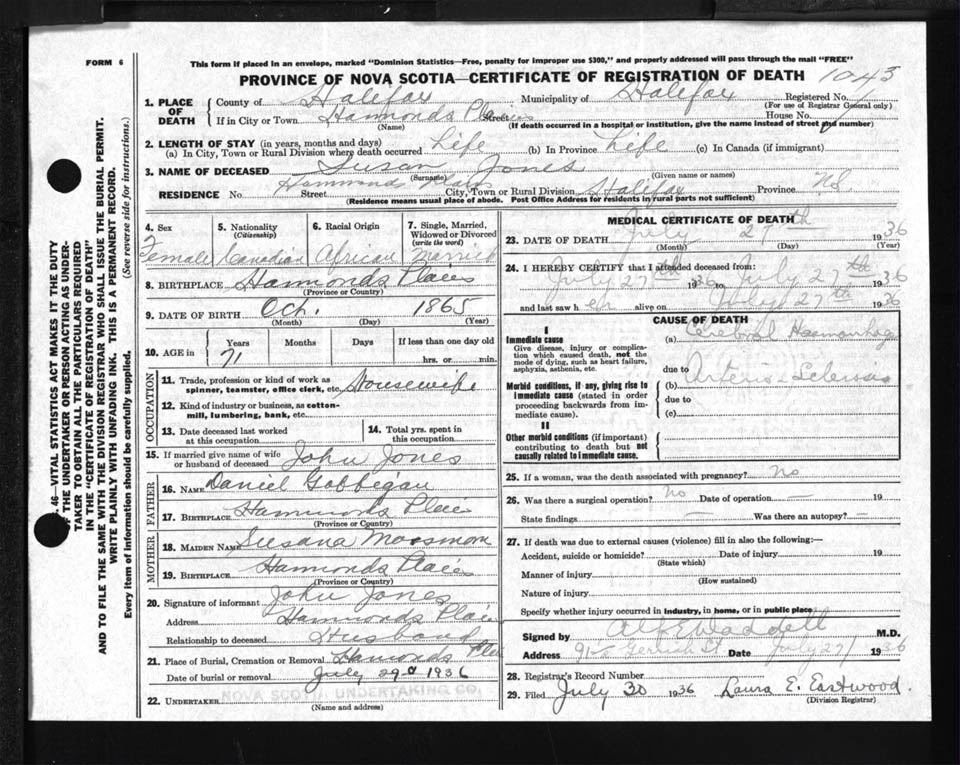 FORM 6
This form if placed in an envelope, marked "Dominion Statistics—Free, penalty for improper use $300," and properly addressed will pass through the mail "FREE"
PROVINCE OF NOVA SCOTIA—CERTIFICATE OF REGISTRATION OF DEATH 1043
1. PLACE OF DEATH
County of Halifax Municipality of Halifax Registered No.
(For use of Registrar General only)
If in City or Town Hammonds Plains Street House No.
(Name) (If death occurred in a hospital or institution, give the name instead of street and number)
2. LENGTH OF STAY (in years, months and days)
(a) In City, Town or Rural Division where death occurred Life (b) In Province Life (c) In Canada (if immigrant)
3. NAME OF DECEASED Susan Jones
(Surname) (Given name or names)
RESIDENCE No. Street Hammonds City, Town or Rural Division Halifax Province NS
(Residence means usual place of abode. Post Office Address for residents in rural parts not sufficient)
4. Sex Female
5. Nationality (Citizenship) Canadian
6. Racial Origin African
7. Single, Married, Widowed or Divorced (write the word) Married
8. BIRTHPLACE Hamonds Plains
(Province or Country)
9. DATE OF BIRTH Oct. 1865
(Month) (Day) (Year)
10. AGE in Years Months Days If less than one day old
71 hrs. or min.
OCCUPATION
11. Trade, profession or kind of work as spinner, teamster, office clerk, etc. Housewife
12. Kind of industry or business, as cotton-mill, lumbering, bank, etc.
13. Date deceased last worked at this occupation
14. Total yrs. spent in this occupation
15. If married give name of wife or husband of deceased John Jones
FATHER
16. NAME Daniel
17. BIRTHPLACE Hammonds Plains
(Province or Country)
MOTHER
18. MAIDEN NAME Susana
19. BIRTHPLACE Hammonds Plains
(Province or Country)
20. Signature of informant John Jones
Address Hammonds Plains
Relationship to deceased Husband
21. Place of Burial, Cremation or Removal Hamonds Plains
Date of burial or removal July 29 1936
NOVA SCOTIA UNDERTAKING CO.
22. UNDERTAKER
(Name and address)
MEDICAL CERTIFICATE OF DEATH
23. DATE OF DEATH July 27th 1936
(Month) (Day) (Year)
24. I HEREBY CERTIFY that I attended deceased from:
July 27th 1936 to July 27th 1936
and last saw her alive on July 27th 1936
CAUSE OF DEATH
I
Immediate cause
Give disease, injury or complication which caused death, not the mode of dying, such as heart failure, asphyxia, asthenia, etc.
(a) Cerebral Haemorrhage
due to
Morbid conditions, if any, giving rise to immediate cause (stated in order proceeding backwards from immediate cause).
(b) Arterio-Sclerosis
due to
(c)
II
Other morbid conditions (if important) contributing to death but not causally related to immediate cause.
25. If a woman, was the death associated with pregnancy? no
26. Was there a surgical operation? no Date of operation — 19
State findings — Was there an autopsy? —
27. If death was due to external causes (violence) fill in also the following:—
Accident, suicide or homicide? Date of injury 19
(State which)
Manner of injury
(How sustained)
Nature of injury
Specify whether injury occurred in industry, in home, or in public place
Signed by Alf E Waddell M.D.
Address Gerrish St. Date July 27/ 1936
28. Registrar's Record Number
29. Filed July 30 1936 Laura E. Eastwood.
(Division Registrar)
46—VITAL STATISTICS ACT MAKES IT THE DUTY OF THE UNDERTAKER OR PERSON ACTING AS UNDERTAKER TO OBTAIN ALL THE PARTICULARS REQUIRED IN THE "CERTIFICATE OF REGISTRATION OF DEATH" AND TO FILE THE SAME WITH THE DIVISION REGISTRAR WHO SHALL ISSUE THE BURIAL PERMIT.
WRITE PLAINLY WITH UNFADING INK. THIS IS A PERMANENT RECORD.
Every item of information should be carefully supplied. (See reverse side for instructions.)